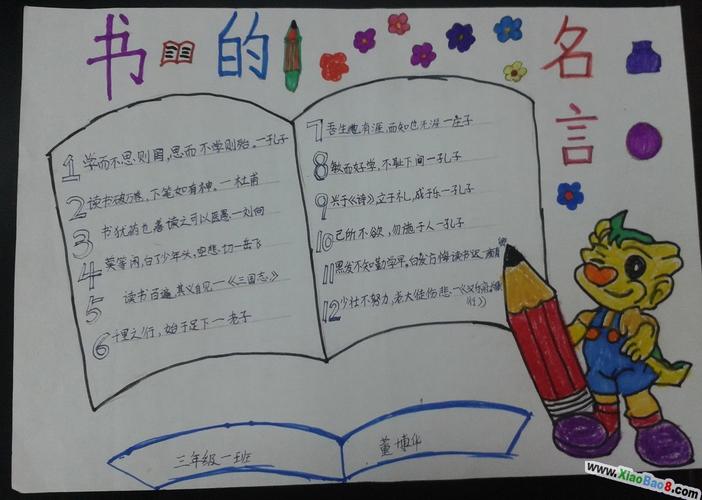 书的名言
1 学而不思则罔,思而不学则殆。一孔子
2 读书破万卷,下笔如有神。一杜甫
3 书犹药也善读之可以医愚一刘向
4 莫等闲,白了少年头,空悲切一岳飞
5 读书百遍,其义自见一《三国志》
6 千里之行,始于足下一老子
7 吾生也有涯,而知也无涯一庄子
8 敏而好学,不耻下问一孔子
9 兴于《诗》,立于礼,成于乐一孔子
10 己所不欲,勿施于人一孔子
11 黑发不知勤学早,白发方悔读书迟
12 少壮不努力,老大徒伤悲
行》
三年级一班
董博
www.XiaoBao8.com